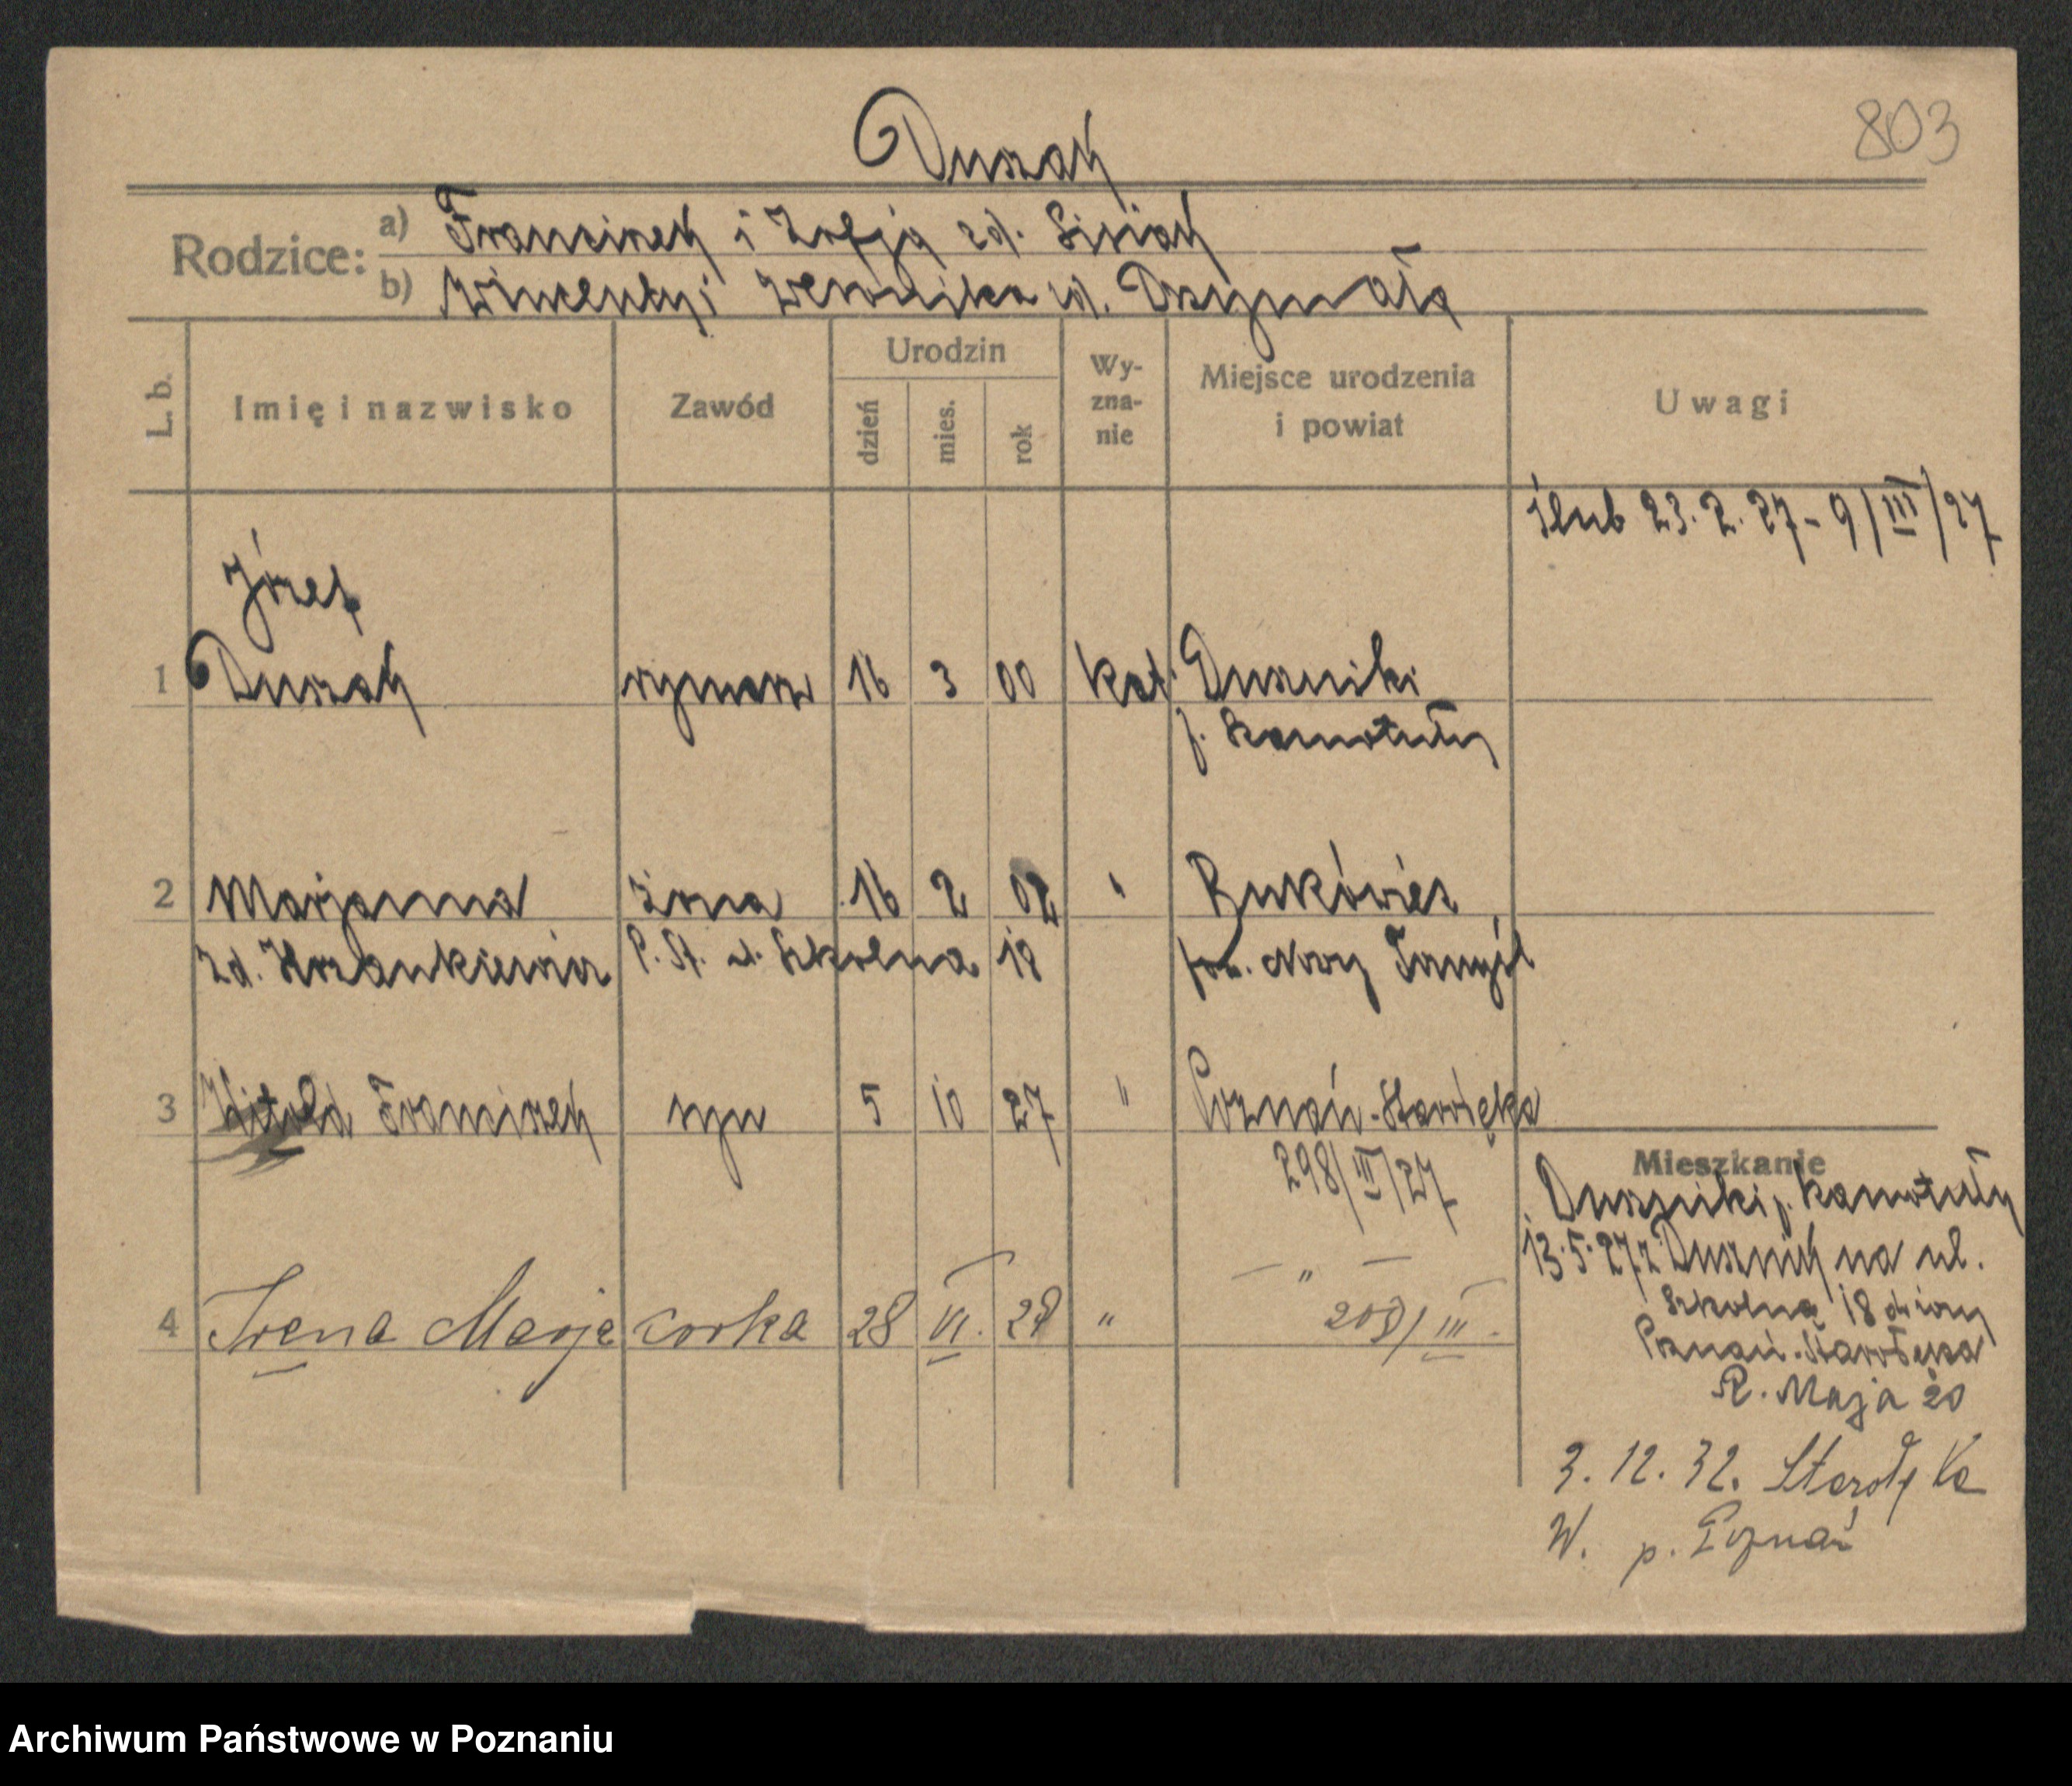 803
Duszak
Rodzice:
a) Franciszek i Zofja zd. Sisiak
b) Wincenty i Weronika zd. Drzymała
L. b.
Imię i nazwisko
Zawód
Urodzin
dzień
mies.
rok
Wy-
zna-
nie
Miejsce urodzenia
i powiat
Uwagi
ślub 23.2.27 - 9/III/27
Józef
1 Duszak rymarz 16 3 00 kat. Duszniki
p. Szamotuły
2 Marjanna żona 16 2 02 " Bukówiec
zd. P. St. ul. Szkolna 18 pow. Nowy Tomyśl
3 Witold Franciszek syn 5 10 27 " Poznań-Starołęka
298/III/27
4 Irena Marja corka 28 VI. 28 " — " —
208/III.
Mieszkanie
Duszniki p. Szamotuły
13.5.27 z Dusznik na ul.
Szkolną 18
Poznań-Starołęka
R. Maja 20
3.12.32. Starołęka
W. p. Poznań
Archiwum Państwowe w Poznaniu